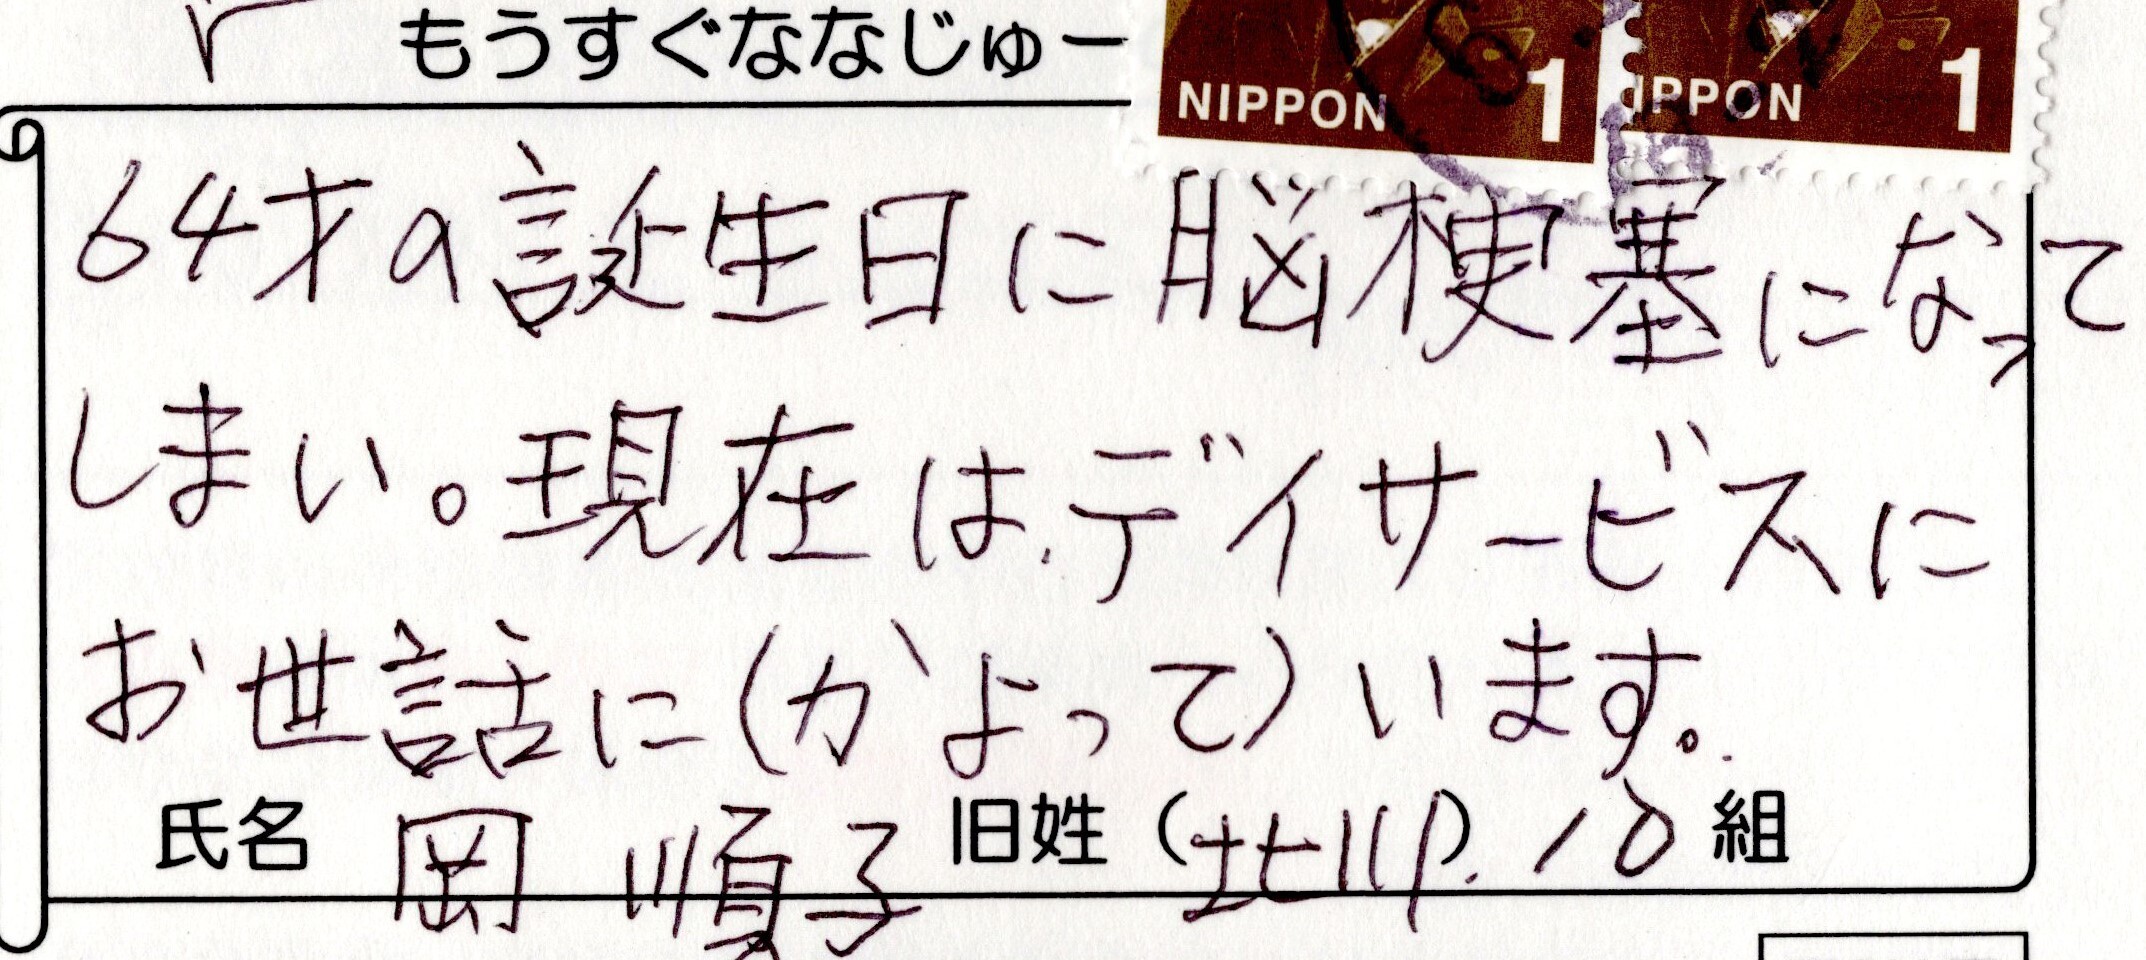 もうすぐななじゅー
NIPPON 1
IPPON 1
64才の誕生日に脳梗塞になって
しまい。現在は、デイサービスに
お世話に(かよって)います。
氏名 岡 順子 旧姓(北川). 10組